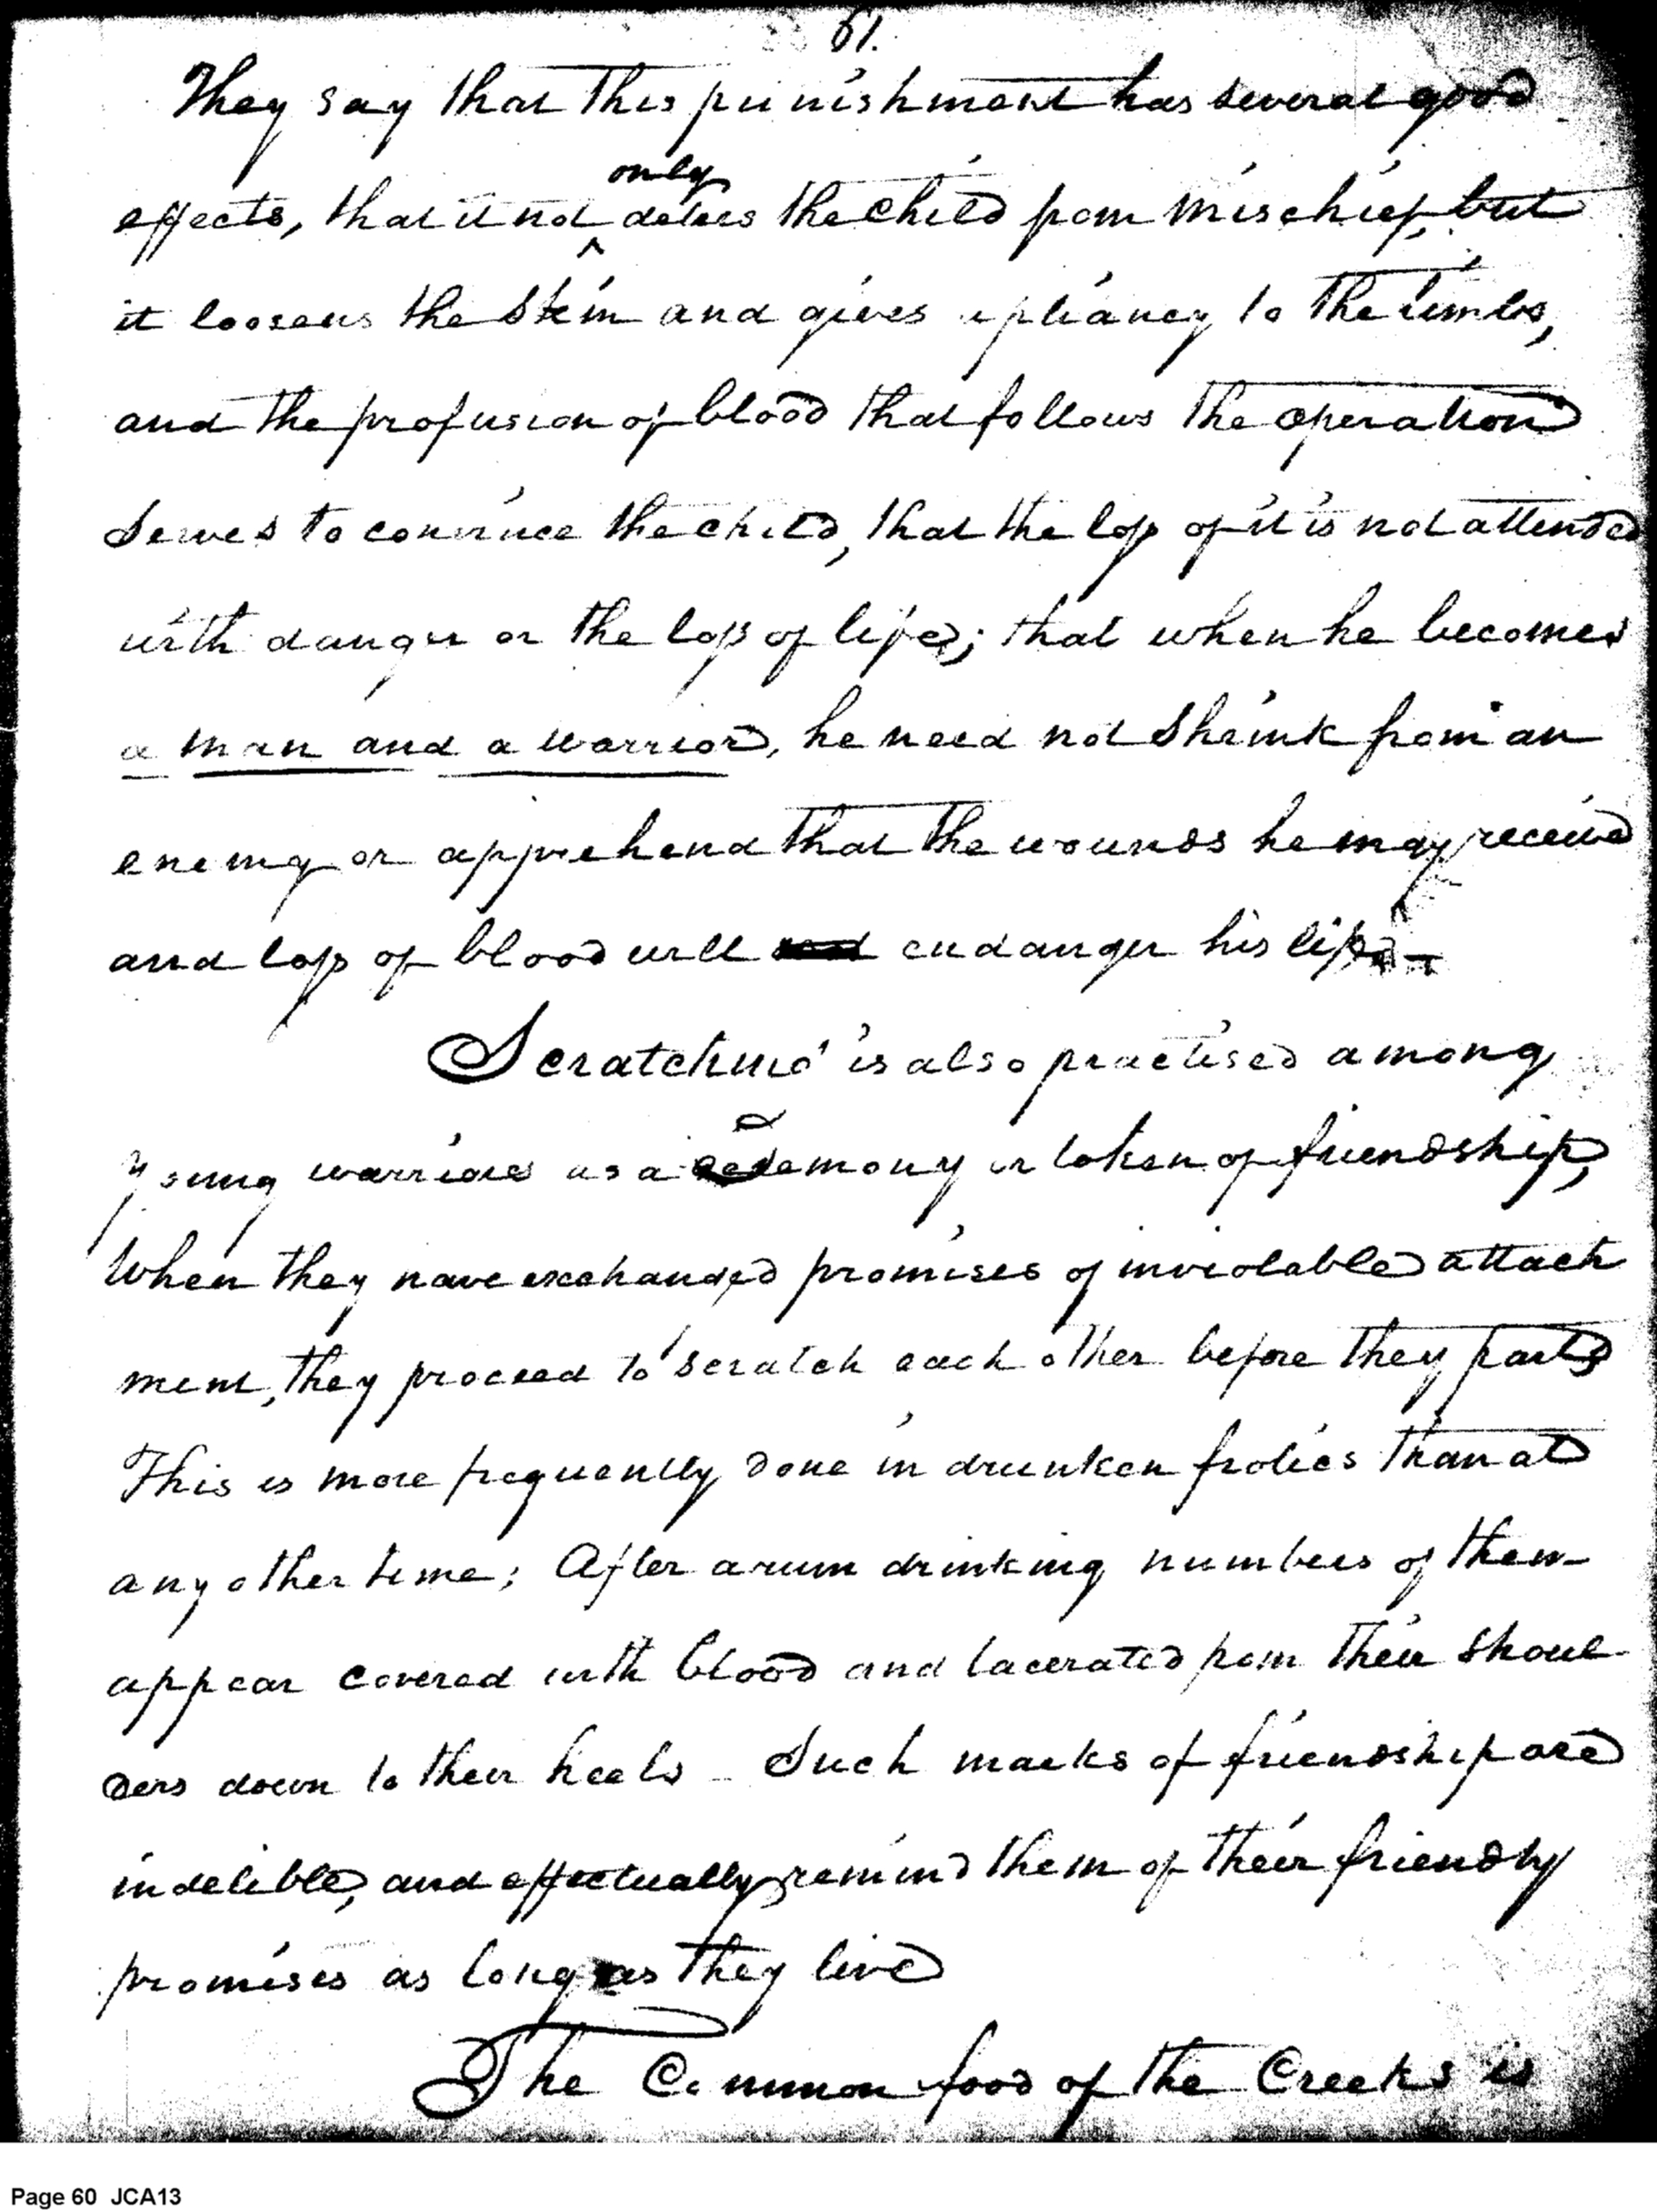 61.
They say that this punishment has several good
only
effects, that it not ^ deters the child from mischief, but
it loosens the skin and gives a pliancy to the limbs,
and the profusion of blood that follows the operation
serves to convince the child, that the loss of it is not attended
with danger or the loss of life; that when he becomes
a man and a warrior, he need not shrink from an
enemy or apprehend that the wounds he may receive
and loss of blood will endanger his life
Scratching is also practised among
young warriors as a ceremony or token of friendship,
When they have exchanged promises of inviolable attach
ment, they proceed to scratch each other before they part
This is more frequently done in drunken frolics than at
any other time; After a rum drinking numbers of them
appear covered with blood and lacerated from their shoul-
ders down to their heels - Such marks of friendship are
indelible, and effectually remind them of their friendly
promises as long as they live
The Common food of the Creeks is
Page 60 JCA13